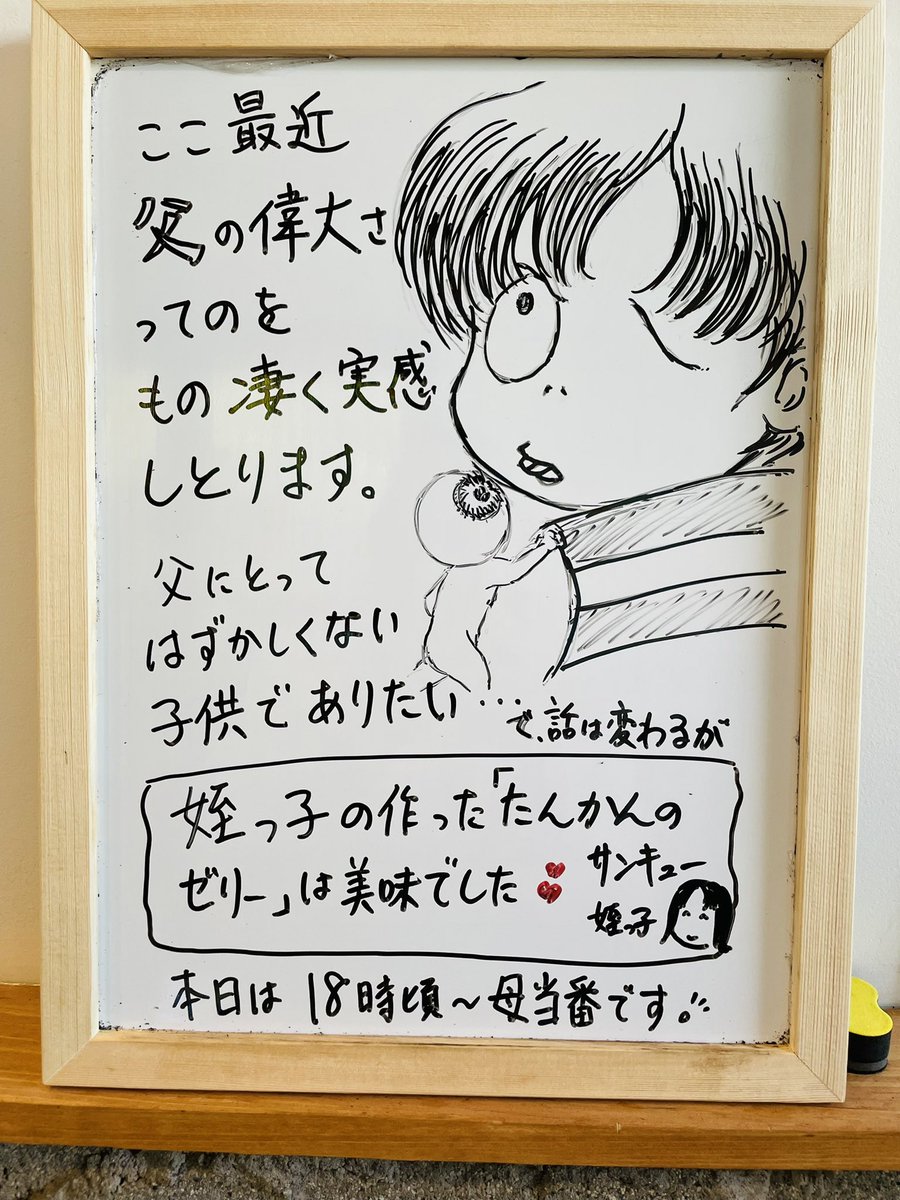 ここ最近
父の偉大さ
ってのを
もの凄く実感
しとります。
父にとって
はずかしくない
子供でありたい…
で、話は変わるが
姪っ子の作った「たんかんの
ゼリー」は美味でした
サンキュー
姪っ子
本日は18時頃～母当番です。